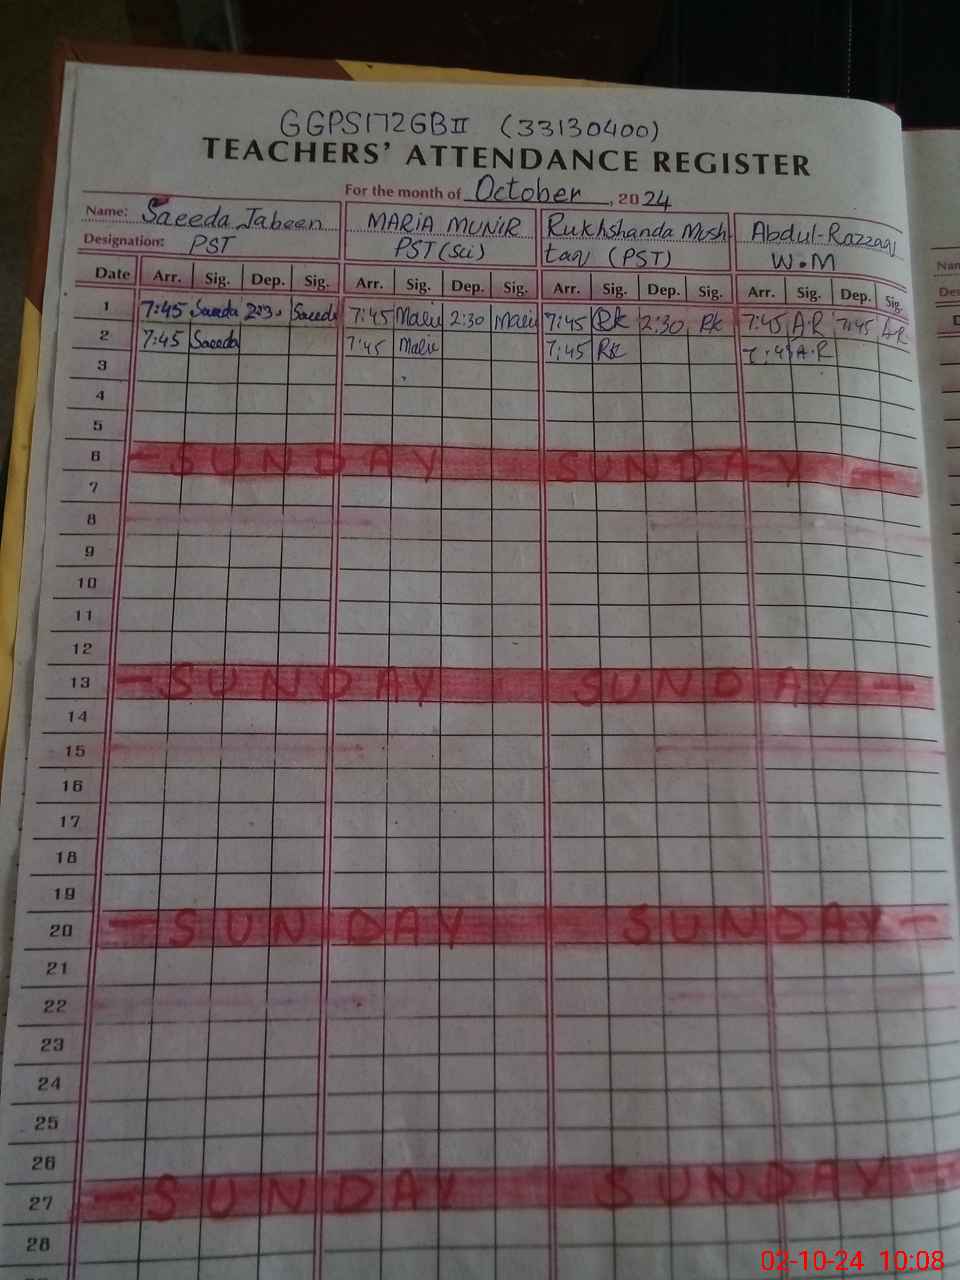 GGPS172GBII (33130400)
TEACHERS' ATTENDANCE REGISTER
For the month of October, 2024
Name: Saeeda Jabeen MARIA MUNIR Rukhshanda Mush Abdul-Razzaq
Designation: PST PST (Sci) taq (PST) W.M
Date Arr. Sig. Dep. Sig. Arr. Sig. Dep. Sig. Arr. Sig. Dep. Sig. Arr. Sig. Dep. Sig.
1 7:45 Saeeda 2:30 Saeeda 7:45 Maria 2:30 Maria 7:45 RK 2:30 RK 7:45 A.R 7:45 A.R
2 7:45 Saeeda 7:45 Maria 7:45 RK 7:45 A.R
3
4
5
6 - SUNDAY SUNDAY -
7
8
9
10
11
12
13 - SUNDAY SUNDAY -
14
15
16
17
18
19
20 - SUNDAY SUNDAY -
21
22
23
24
25
26
27 - SUNDAY SUNDAY -
28
02-10-24 10:08